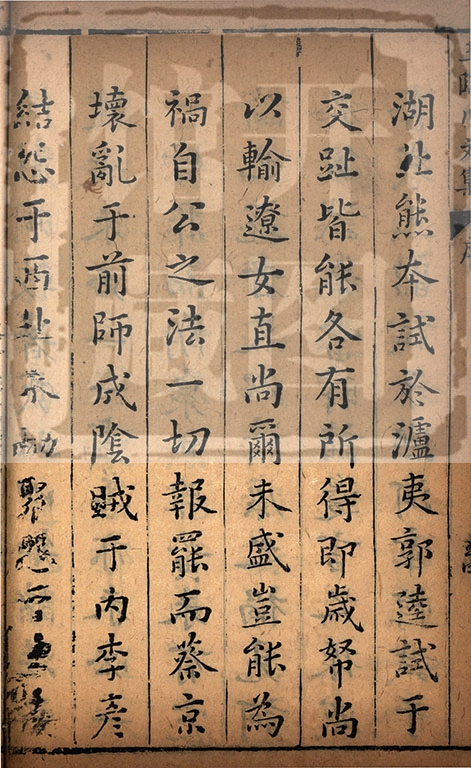 湖北熊本試於瀘夷郭逵試于
交趾皆能各有所得即歲幣尚
以輸遼女直尚爾未盛豈能為
禍自公之法一切報罷而蔡京
壞亂于前師成陰賊于内李彦
結怨于西北朱勔聚怨于東南